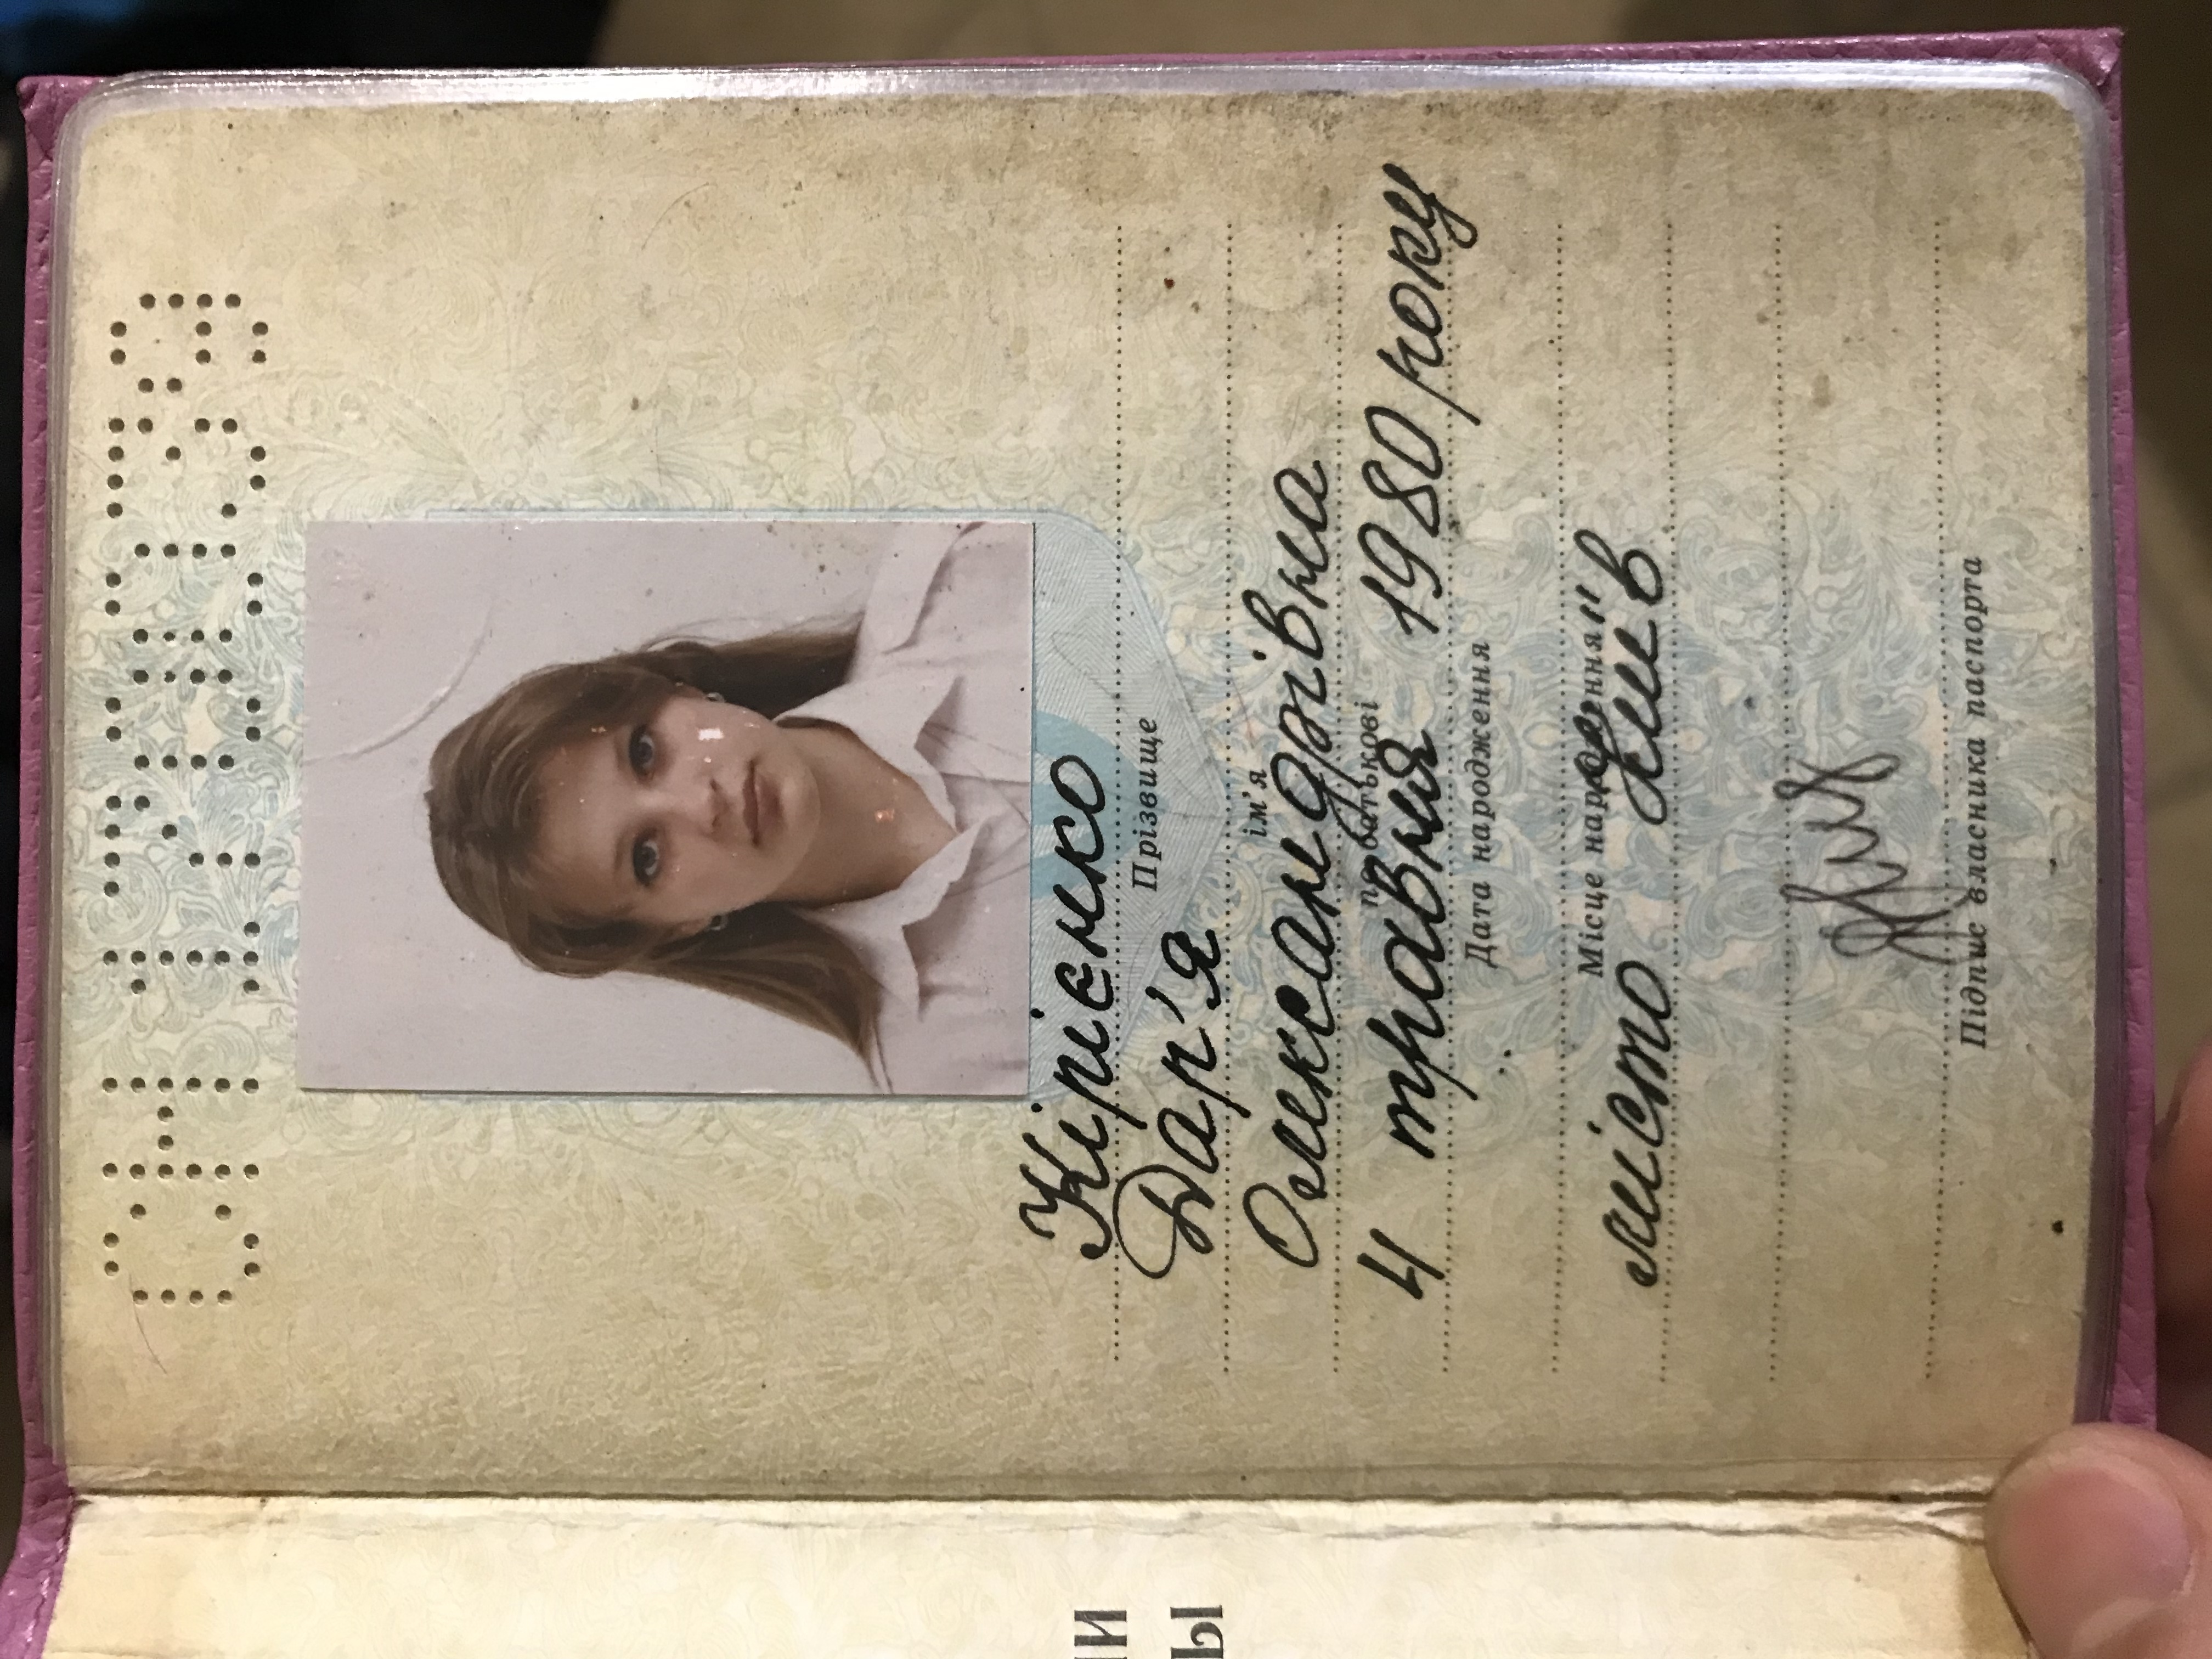 СН170039
Кірієнко
Прізвище
Дар'я
ім'я
Олександрівна
по батькові
4 травня 1980 року
Дата народження
Місце народження
місто Київ
Підпис власника паспорта